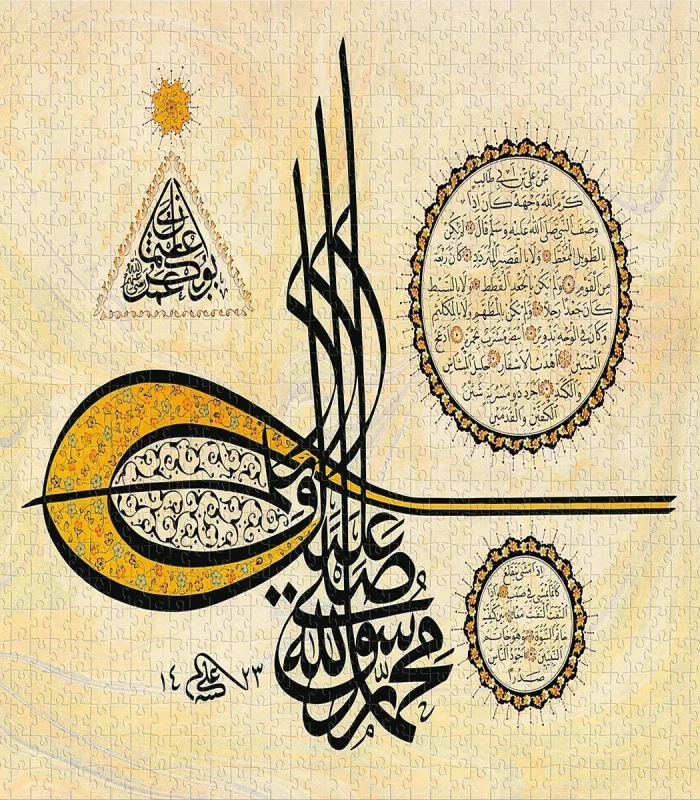 عن علي بن ابي طالب
كرم الله وجهه كان اذا
وصف النبي صلى الله عليه وسلم قال لم يكن
بالطويل الممغط ولا بالقصير المتردد كان ربعة
من القوم ولم يكن بالجعد القطط ولا بالسبط
كان جعدا رجلا ولم يكن بالمطهم ولا بالمكلثم
وكان في الوجه تدوير ابيض مشرب بحمرة ادعج
العينين اهدب الاشفار جليل المشاش
والكتد اجرد ذو مسربة شثن
الكفين والقدمين
محمد رسول الله صلى الله عليه وسلم
اذا مشى يتقلع
كانما يمشي في صبب واذا
التفت التفت معا بين كتفيه
خاتم النبوة وهو خاتم
النبيين اجود الناس
صدرا
١٤ علي ٢٣